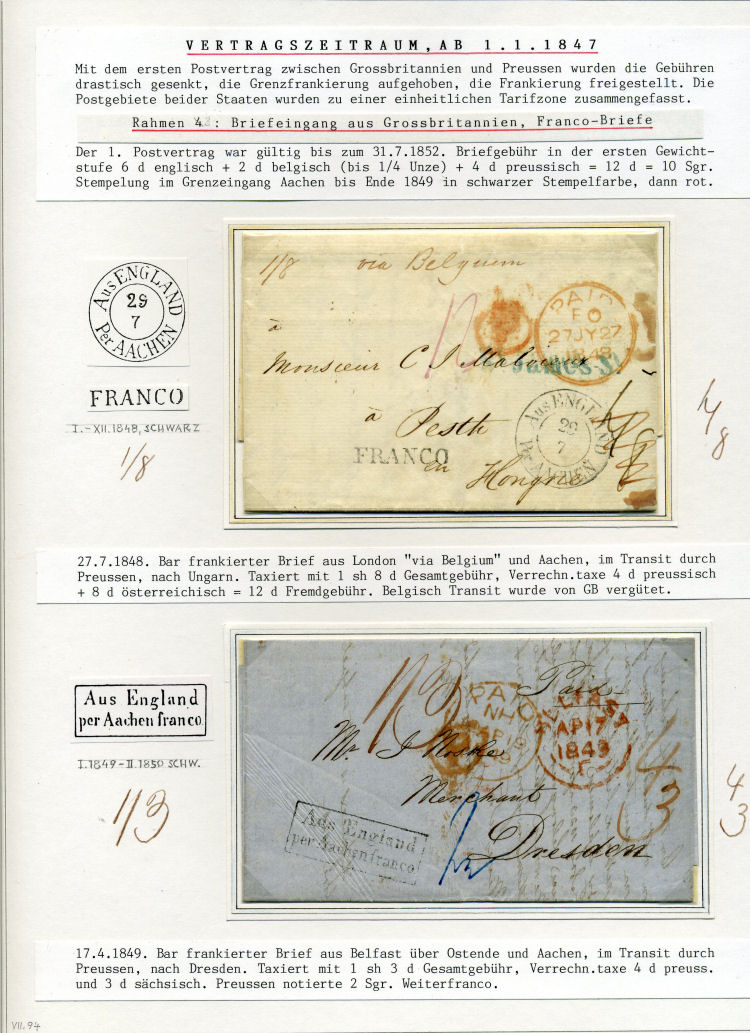 VERTRAGSZEITRAUM, AB 1.1.1847
Mit dem ersten Postvertrag zwischen Grossbritannien und Preussen wurden die Gebühren
drastisch gesenkt, die Grenzfrankierung aufgehoben, die Frankierung freigestellt. Die
Postgebiete beider Staaten wurden zu einer einheitlichen Tarifzone zusammengefasst.
Rahmen 4: Briefeingang aus Grossbritannien, Franco-Briefe
Der 1. Postvertrag war gültig bis zum 31.7.1852. Briefgebühr in der ersten Gewicht-
stufe 6 d englisch + 2 d belgisch (bis 1/4 Unze) + 4 d preussisch = 12 d = 10 Sgr.
Stempelung im Grenzeingang Aachen bis Ende 1849 in schwarzer Stempelfarbe, dann rot.
Aus ENGLAND
29
7
Per AACHEN
FRANCO
I.-XII.1848, SCHWARZ
1/8
1/8 via Belguem
PAID
EO
27JY27
1848
James St
à
Monsieur C J Malvieux
à Pesth
en Hongrie
FRANCO
Aus ENGLAND
29
7
Per AACHEN
4/8
27.7.1848. Bar frankierter Brief aus London "via Belgium" und Aachen, im Transit durch
Preussen, nach Ungarn. Taxiert mit 1 sh 8 d Gesamtgebühr, Verrechn.taxe 4 d preussisch
+ 8 d österreichisch = 12 d Fremdgebühr. Belgisch Transit wurde von GB vergütet.
Aus England
per Aachen franco
I.1849-II.1850 SCHW.
1/3
1/3
Paid
PAID
NH
AP17
1849
Mr. J Noske
Merchant
Dresden
Aus England
per Aachen franco
4
3
4
3
17.4.1849. Bar frankierter Brief aus Belfast über Ostende und Aachen, im Transit durch
Preussen, nach Dresden. Taxiert mit 1 sh 3 d Gesamtgebühr, Verrechn.taxe 4 d preuss.
und 3 d sächsisch. Preussen notierte 2 Sgr. Weiterfranco.
VII.94